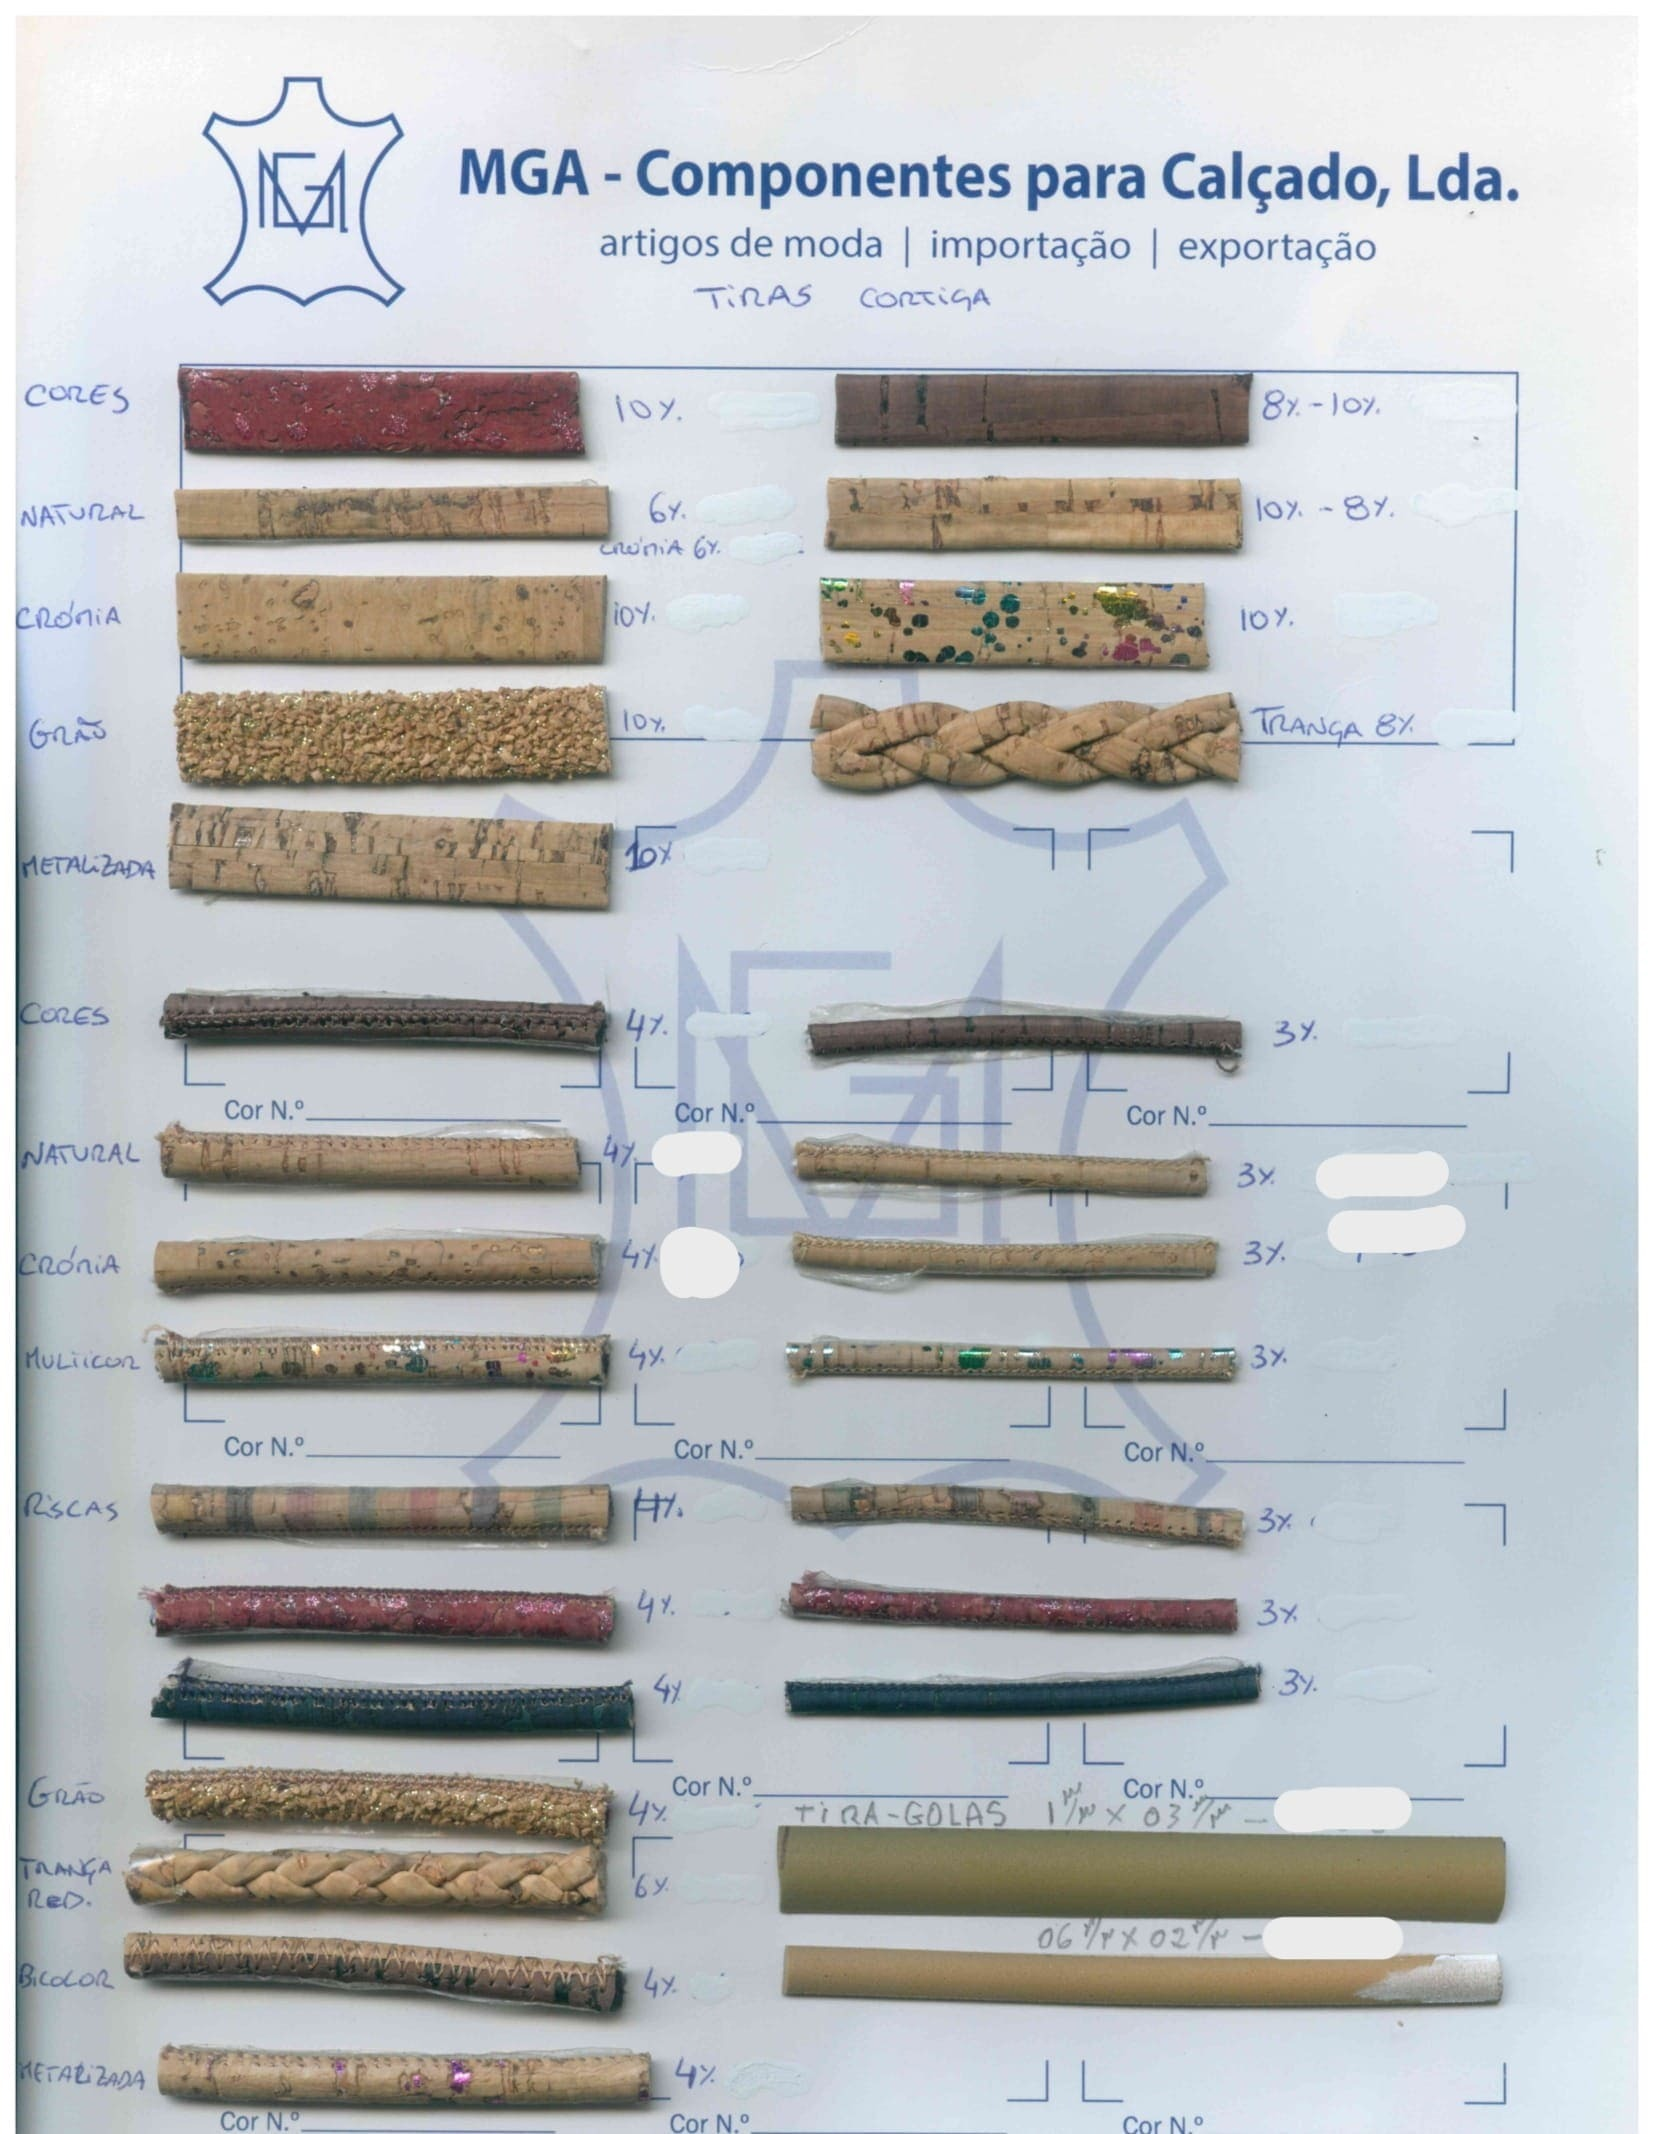 MGA
MGA - Componentes para Calçado, Lda.
artigos de moda | importação | exportação
TIRAS CORTIÇA
CORES 10%. 8%. - 10%.
NATURAL 6%. 10%. - 8%.
CRÓMIA 6%.
CRÓMIA 10%. 10%.
GRÃO 10%. TRANÇA 8%.
METALIZADA 10%
CORES 4%. 3%.
Cor N.º Cor N.º Cor N.º
NATURAL 4%. 3%.
CRÓMIA 4%. 3%.
MULTICOR 4%. 3%.
Cor N.º Cor N.º Cor N.º
RISCAS 4%. 3%.
4%. 3%.
4% 3%.
Cor N.º Cor N.º
GRÃO 4%. TIRA-GOLAS 1 m/m X 03 m/m -
TRANÇA
RED. 6%.
06 m/m X 02 m/m -
BICOLOR 4%.
METALIZADA 4%.
Cor N.º Cor N.º Cor N.º